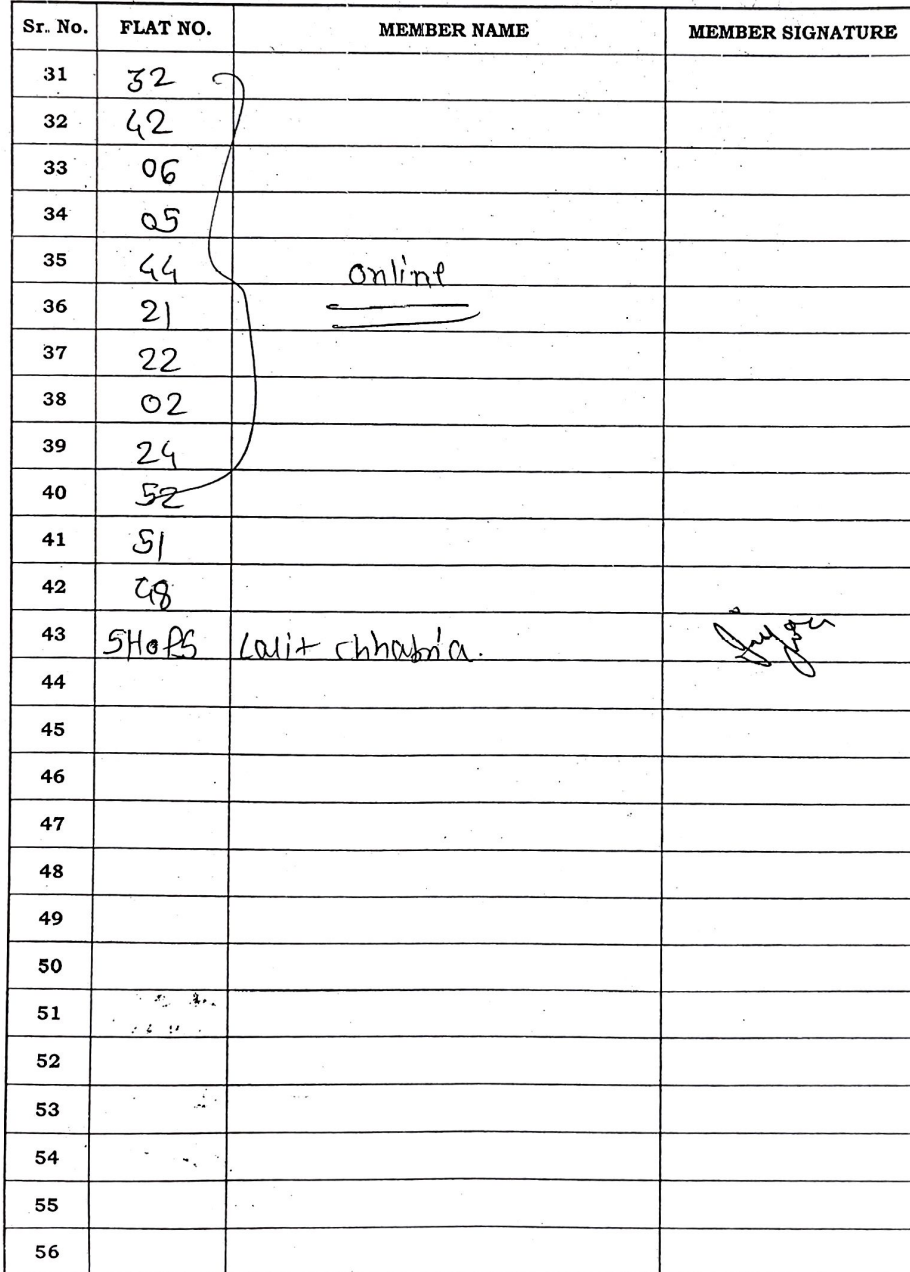 Sr. No. FLAT NO. MEMBER NAME MEMBER SIGNATURE
31 32
32 42
33 06
34 05
35 44 online
36 21
37 22
38 02
39 24
40 52
41 51
42 48
43 SHOPS Lalit chhabria.
44
45
46
47
48
49
50
51
52
53
54
55
56